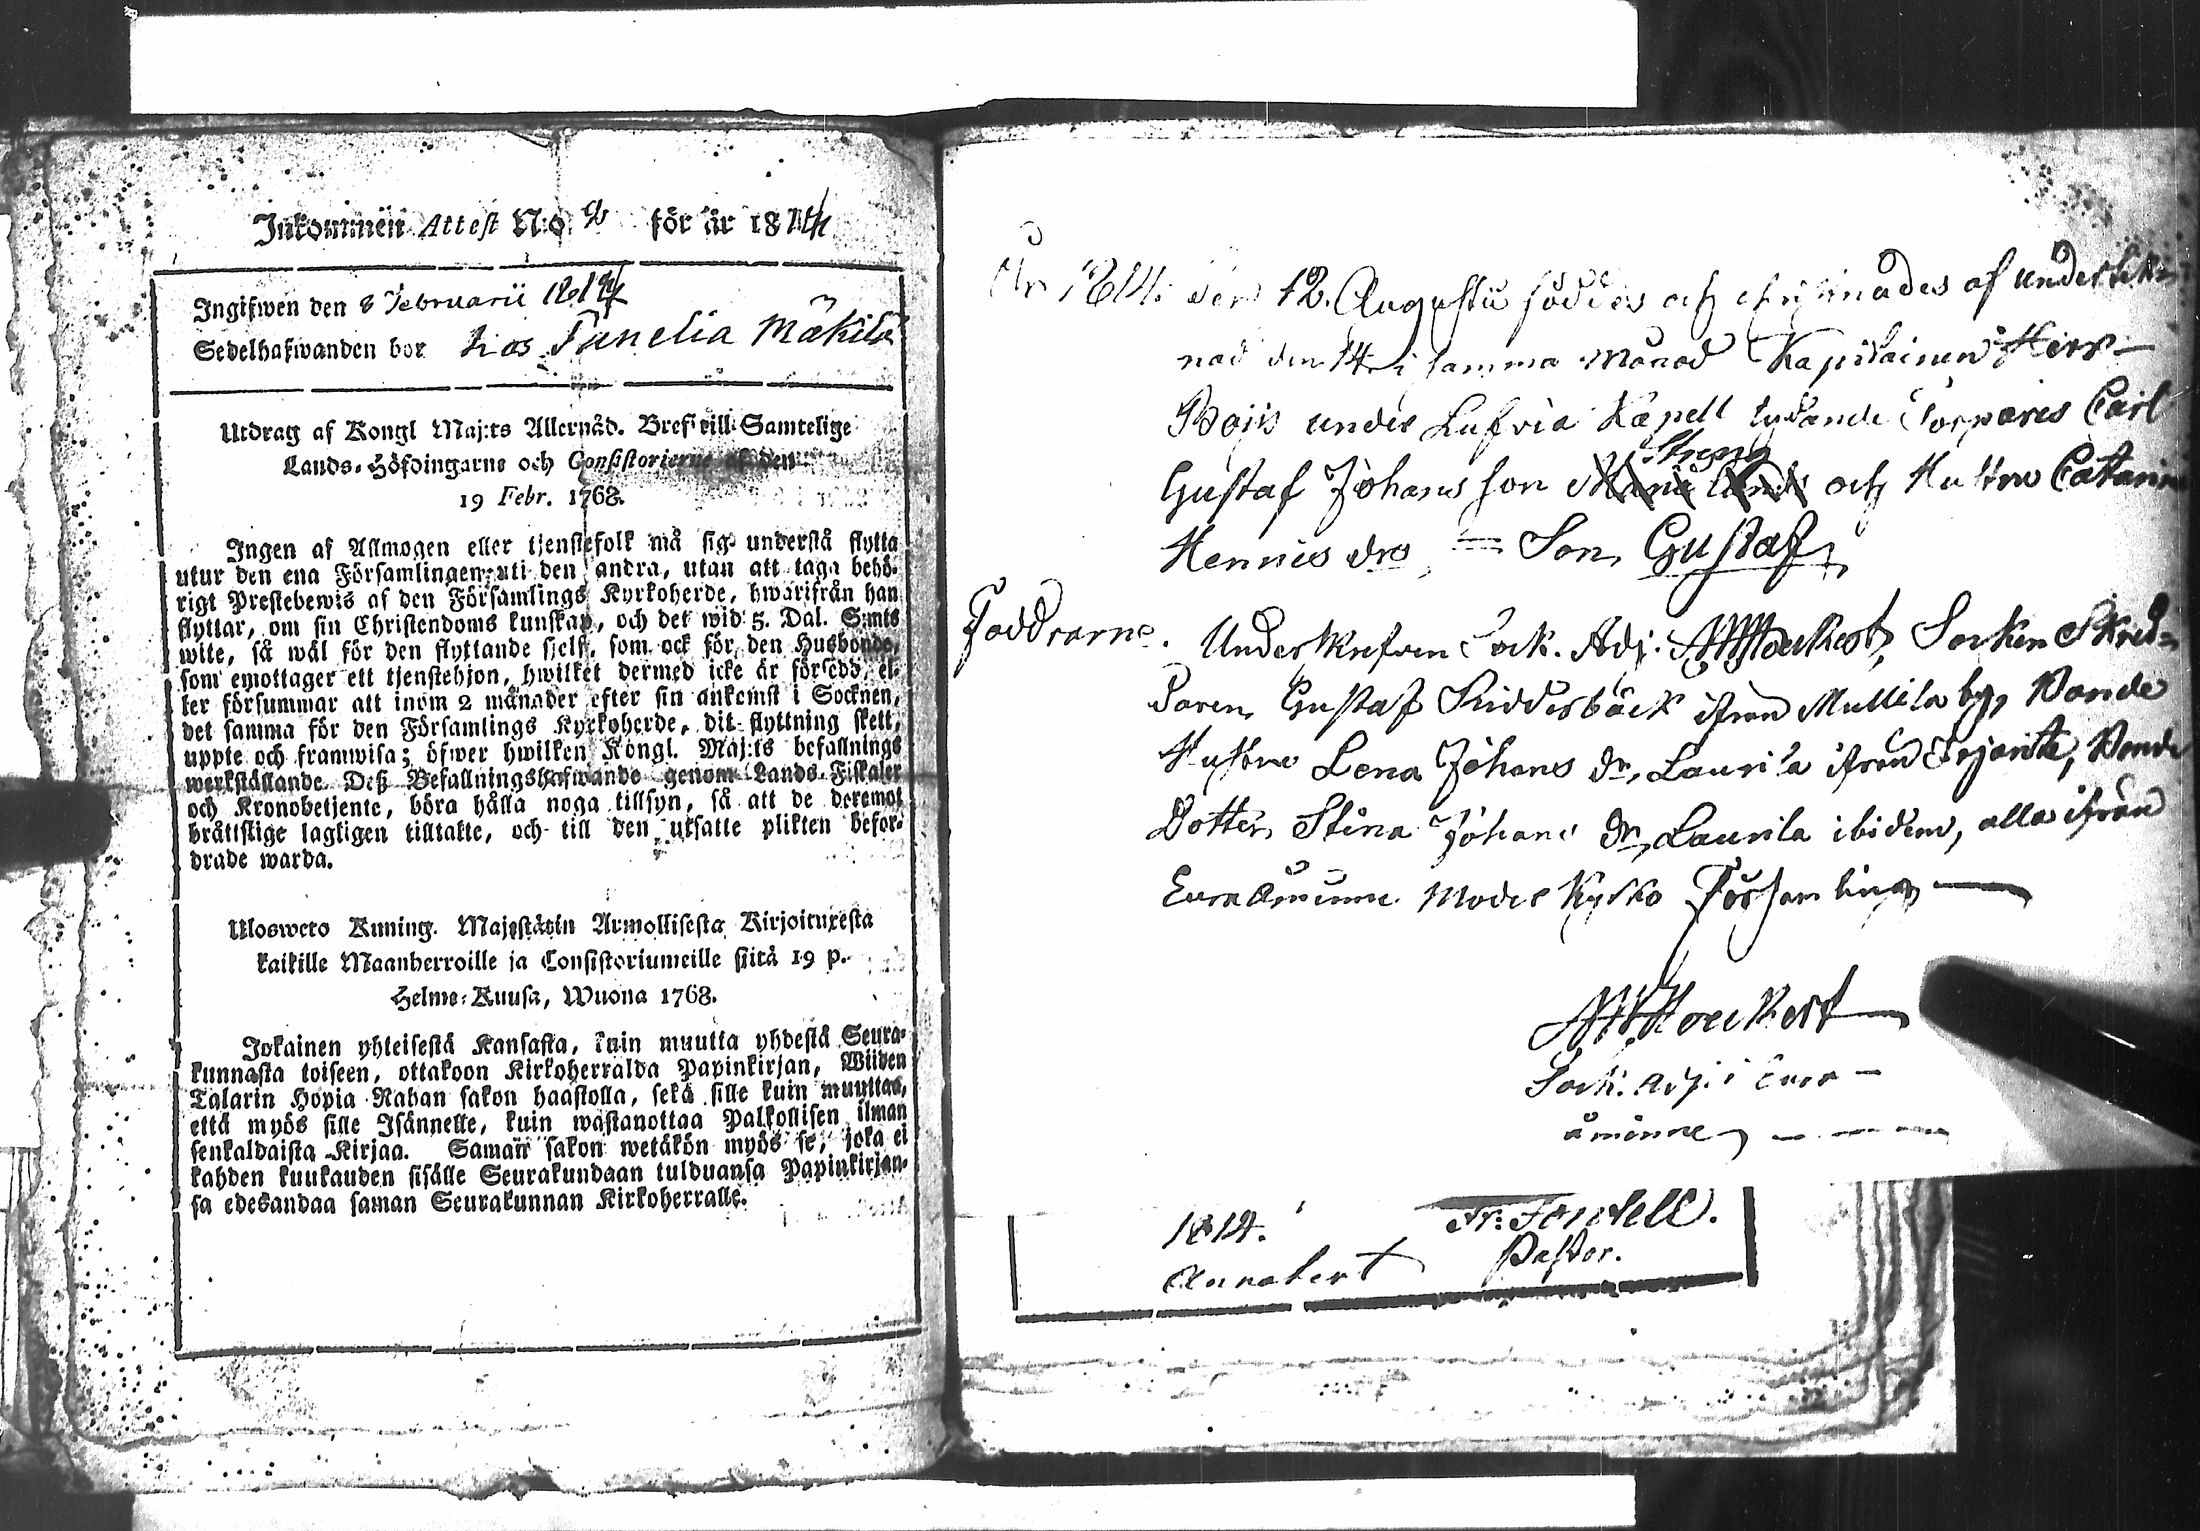 Inkommen Attest N:o för år 1814
Ingifwen den 8 Februarii 1814
Sedelhafwanden bor hos Panelia Mäkilä
Utdrag af Kongl Maj:ts Allernåd. Bref till Samtelige
Lands-Höfdingarne och Consistorierne af den
19 Febr. 1768.
Ingen af Allmogen eller tjenstefolk må sig understå flytta
utur den ena Församlingen uti den andra, utan att taga behö-
rigt Prestebewis af den Församlings Kyrkoherde, hwarifrån han
flyttar, om sin Christendoms kunskap, och det wid 5. Dal. S:mts
wite, så wäl för den flyttande sjelf, som ock för den Husbonde,
som emottager ett tjenstehjon, hwilket dermed icke är försedd, el-
ler försummar att inom 2 månader efter sin ankomst i Socknen,
det samma för den Församlings Kyrkoherde, dit flyttning skett,
uppte och framwisa; öfwer hwilken Kongl. Maj:ts befallnings
werkställande Deß Befallningshafwande genom Lands-Fiskaler
och Kronobetjente, böra hålla noga tillsyn, så att de deremot
bråttslige lagligen tilltalte, och till den utsatte plikten befor-
drade warda.
Ulosweto Kuning. Majestätin Armollisesta Kirjoituxesta
kaikille Maanherroille ja Consistoriumeille siitä 19 p.
Helme-Kuusa, Wuona 1768.
Jokainen yhteisestä Kansasta, kuin muutta yhdestä Seura-
kunnasta toiseen, ottakoon Kirkoherralda Papinkirjan, Wiiden
Talarin Hopia Rahan sakon haastolla, sekä sille kuin muuttaa,
että myös sille Isännelle, kuin wastanottaa Palkollisen ilman
senkaldaista Kirjaa. Saman sakon wetäkön myös se, joka ei
kahden kuukauden sisälle Seurakundaan tulduansa Papinkirjan-
sa edesandaa saman Seurakunnan Kirkoherralle.
År 1814 den 12. Augusti föddes och christnades af underteck-
nad den 14 i samma Månad Kapitainen Herr
Bojis under Lufvia Kapell lydande Torpares Carl
Streng
Gustaf Johansson och Hustru Catarina
Hennics dr Son Gustaf
Faddrarne. Underskrefven Sock. Adj. Hoeckert, Socken Skred-
daren Gustaf Ridderbäck ifrån Mullila by, Bonde
Hustrun Lena Johans dr Laurila ifrån Irjante, Bonde
Dotter Stina Johans dr Laurila ibidem, alla ifrån
Euraåminne Moder Kyrko Församling
Hoeckert
Sock. Adj. i Eura-
åminne
1814.
Fr: Forssell.
Pastor.